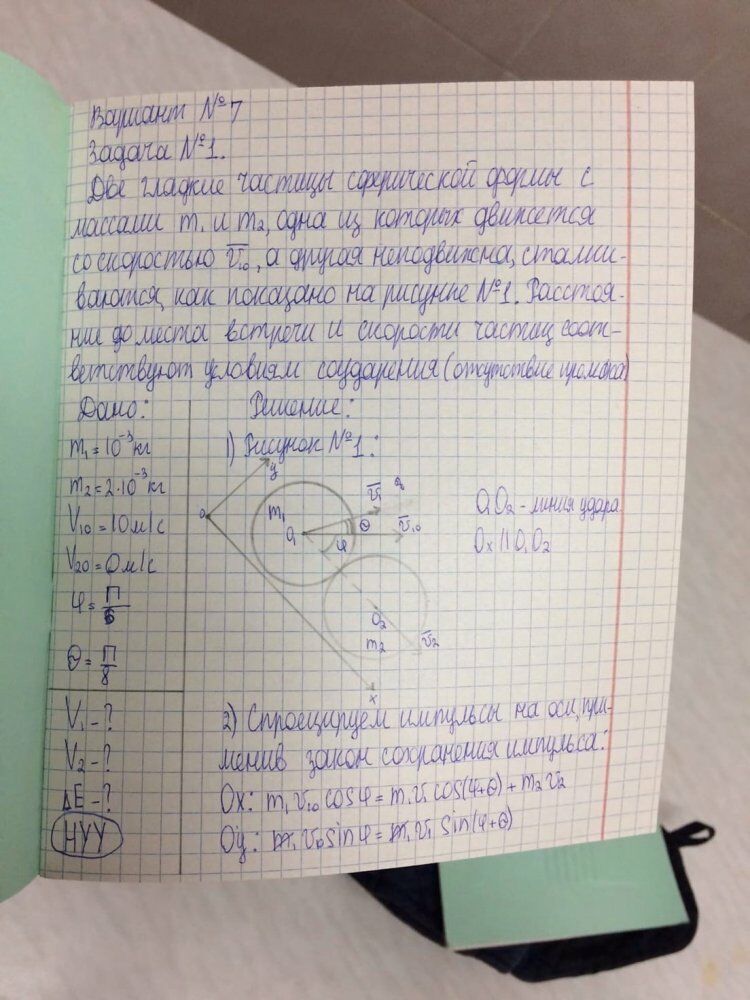 Вариант №7
Задача №1.
Две гладкие частицы сферической формы с
массами m₁ и m₂, одна из которых движется
со скоростью v̅₁₀, а другая неподвижна, сталки-
ваются, как показано на рисунке №1. Расстоя-
ние до места встречи и скорости частиц соот-
ветствуют условиям соударения (отсутствие промаха)
Дано:
Решение:
m₁=10⁻³кг
1) Рисунок №1:
m₂=2·10⁻³кг
V₁₀=10м/с
V₂₀=0м/с
φ=π/6
θ=π/8
y
0
m₁
O₁
v̅₁
θ
v̅₁₀
φ
O₂
m₂
v̅₂
x
O₁O₂ - линия удара
Ox || O₁O₂
V₁-?
V₂-?
ΔE-?
НУУ
2) Спроецируем импульсы на оси, при-
менив закон сохранения импульса:
Ox: m₁v₁₀cosφ=m₁v₁cos(φ+θ)+m₂v₂
Oy: m₁v₁₀sinφ=m₁v₁sin(φ+θ)